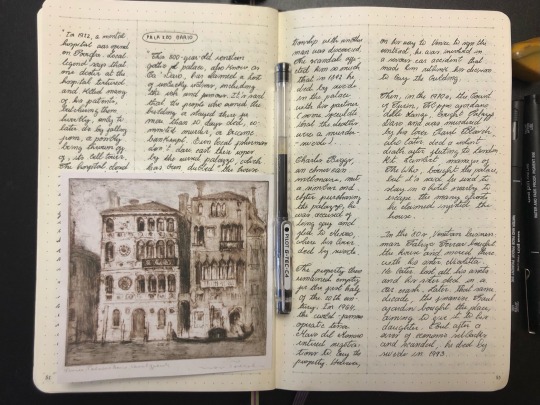 "In 1912, a mental
hospital was opened
legend says that
one doctor at the
hospital tortured
and killed many
of his patients,
only to
later die by falling
from, a possibly
being thrown off
of, its bell tower.
The hospital closed
PALAZZO DARIO
"This 500-year old Venetian
gothic palace, also known as
Ca' Dario, has claimed a lot
of wealthy victims, including
the rich and famous. It is said
that the people who owned the
building or stayed there for
more than 20 days died, co-
mmitted murder, or became
bankrupt. Even local fishermen
don't dare cast their
by the cursed palazzo, which
has been dubbed the house
tionship with another
man was discovered.
The scandal
ted him so much
that in 1842 he
died by suicide
in the palace
with his partner
(some speculate
that the deaths
were a murder
-suicide).
Charles Briggs,
an American
millionaire, met
a similar end
after purchasing
the palazzo, he
was accused of
being gay and
fled to Mexico,
where his lover
died by suicide.
The property then
remained empty
for the first half
of the 20th cen-
tury. In 1964,
the world-famous
operatic tenor
Mario del Monaco
entered negotia-
tions to buy the
property. However,
on his way to Venice to sign the
contract, he was involved in
a serious car accident that
made him rethink his decision
to buy the building.
Then, in the 1970s, the Count
of Turin, Filippo Giordano
delle Lanze, bought Palazzo
Dario and was murdered
by his lover Raul Blasich,
who later died a violent
death after fleeing to London.
Kit Lambert, manager of
The Who, bought the palace,
but it is said he used to
sleep in a hotel nearby to
escape the many ghosts
he claimed
house.
In the 80s, Venetian business-
man Fabrizio Ferrari bought
the house and moved there
with his sister Nicoletta.
He later lost all his assets
and his sister died in a
car crash. Later that same
decade, the financier Raul
Gardini bought the place,
aiming to give it to his
daughter. But after a
series of economic setbacks
and scandal, he died by
suicide in 1993.